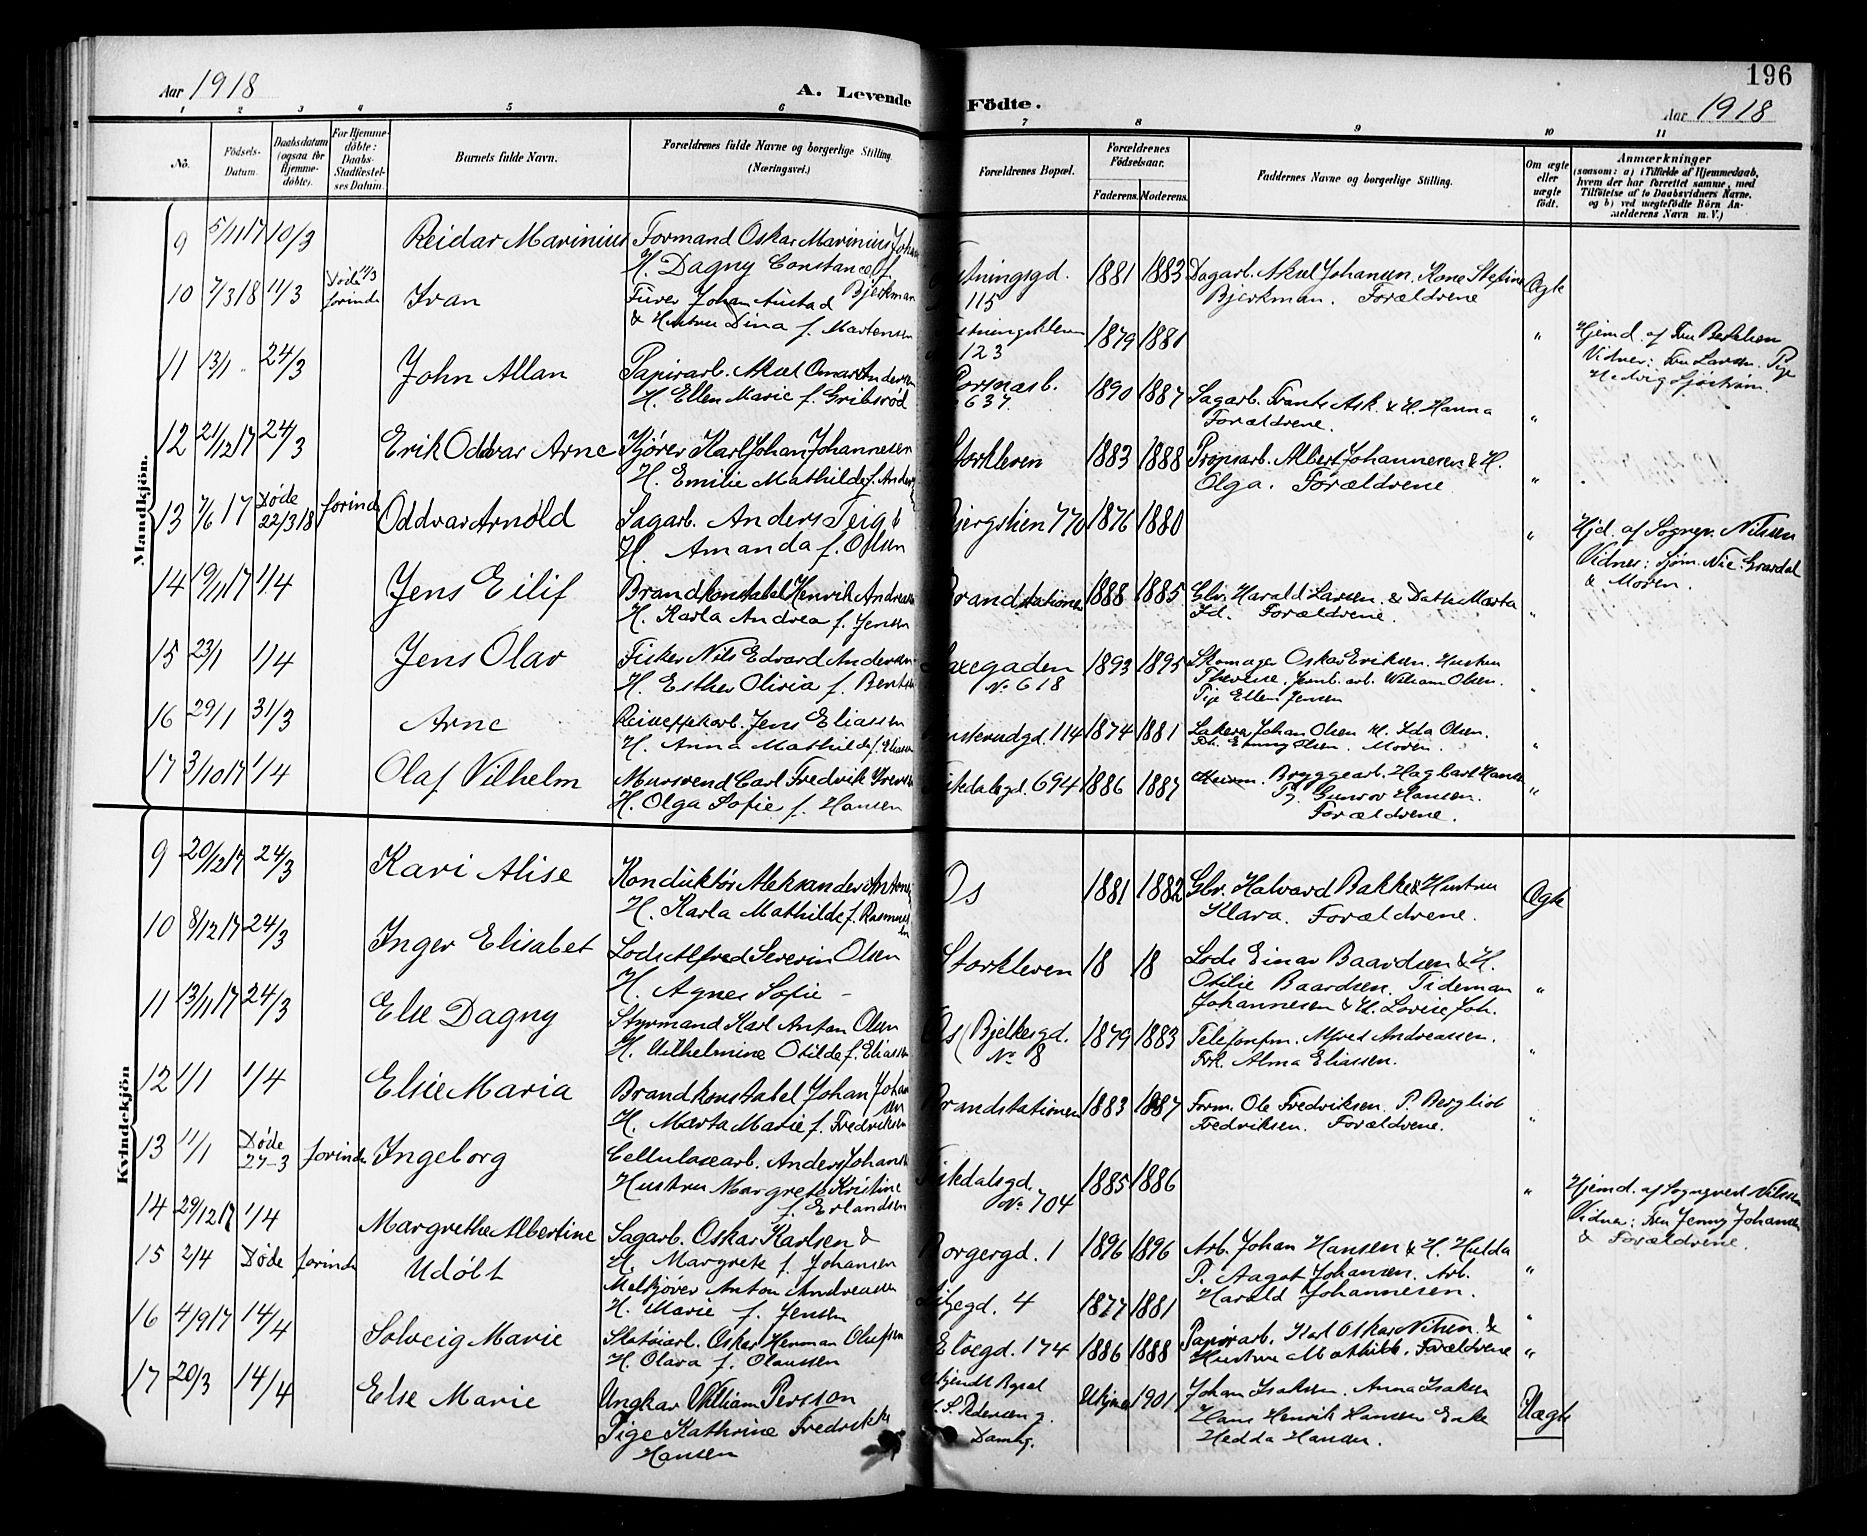 196
Aar 1918
A. Levende Födte.
Aar 1918
1 2 3 4 5 6 7 8 9 10 11
No.
Födsels-Datum.
Daabsdatum (ogsaa for Hjemme-döbte).
For Hjemme-döbte: Daabs-Stadfæstel-ses Datum.
Barnets fulde Navn.
Forældrenes fulde Navne og borgerlige Stilling (Næringsvei.)
Forældrenes Bopæl.
Forældrenes Födselsaar.
Faderens. Moderens.
Faddernes Navne og borgerlige Stilling.
Om ægte eller uægte födt.
Anmærkninger
(saasom: a) i Tilfælde af Hjemmedaab,
hvem der har forrettet samme, med
Tilföielse af to Daabsvidners Navne,
og b) ved uægtefödte Börn An-
melderens Navn m. V.)
Mandkjön.
9 5/11 17 10/3 Reidar Marinius Formand Oskar Marinius Johan
H. Dagny Constance f. Bjerkman
115 1881 1883 Dagarb. Aksel Johansen. Kone Stefine
Bjerkman. Forældrene Ægte
10 7/3 18 11/3 Døde 11/3 forinden Ivan Furer Johan Austad
& Hustru Dina f. Martensen
123 1879 1881 "
Hjemd. af Fru Berthelsen
Vidner: Fru Larsen. Pige
Hedvig Sjöström
11 13/1 24/3 John Allan Papirarb. Aksel Omar Andersen
H. Ellen Marie f. Gribsrød
637. 1890 1887 Sagarb. Frants Ask. & H. Hanna
Forældrene. "
12 21/12 17 24/3 Erik Oddvar Arne Kjører Karl Johan Johannesen
H. Emilie Mathilde f. Anders
Storkleven 1883 1888 Propsarb. Albert Johannesen & H.
Olga. Forældrene "
13 7/6 17 Døde 22/3 18 forinden Oddvar Arnold Sagarb. Anders Teig &
H. Amanda f. Olsen
Bjergslien 770 1876 1880 "
Hjd. af Sognepr. Nilssen
Vidner: Sjøm. Nic. Graadal
& Moren.
14 19/11 17 1/4 Jens Eilif Brandkonstabel Henrik Andreasen
H. Karla Andrea f. Jensen
Brandstationen 1888 1885 Gbr. Harald Larsen. & Datter Marta
Sd. Forældrene. "
15 23/1 1/4 Jens Olav Fisker Nils Edvard Andersen
H. Esther Olivia f. Bentsen
No. 618 1893 1895 Skomager Oskar Eriksen. Hustru
Therese. Jernb. arb. William Olsen.
Pige Ellen Jensen "
16 29/1 31/3 Arne Jens Eliassen
H. Anna Mathilde f. Eliassen
114 1874 1881 Johan Olsen H. Ida Olsen.
Frk. Olsen. Moren. "
17 3/10 17 1/4 Olaf Vilhelm Mursvend Carl Fredrik Svensen
H. Olga Sofie f. Hansen
694 1886 1887 Bryggearb. Hagbart Hansen
Pg. Gunvor Hansen.
Forældrene. "
Kvindekjön
9 20/12 17 24/3 Kari Alise Konduktör Aleksander Antoni
H. Karla Mathilde f. Rasmussen
Os 1881 1882 Gbr. Halvard Bakke & Hustru
Klara. Forældrene. Ægte
10 8/12 17 24/3 Inger Elisabet Lods Alfred Severin Olsen
H. Agnes Sofie -
Storkleven 18 18 Lods Einar Baardsen & H.
Otilie Baardsen. Tideman
Johannesen & H. Lovise Joh. "
11 13/11 17 24/3 Else Dagny Styrmand Karl Anton Olsen
H. Vilhelmine Otilde f. Eliassen
Os (Bjelkesgd. No. 8 1879 1883 Telefonfm. Alfred Andreassen.
Frk. Alma Eliassen. "
12 1/1 1/4 Elsie Maria Brandkonstabel Johan Johansen
H. Marta Marie f. Fredriksen
Brandstationen 1883 1887 Form. Ole Fredriksen. P. Bergliot
Fredriksen. Forældrene. "
13 11/1 Døde 27-3 forinden Ingeborg Cellulosearb. Anders Johansen
Hustru Margrete Kristine
f. Erlandsen
No. 704 1885 1886 "
Hjemd. af Sogneprest Nilssen
Vidner: Fru Jenny Johansen
& Forældrene.
14 29/12 17 1/4 Margrethe Albertine Sagarb. Oskar Karlsen &
H. Margrete f. Johansen
Borgergd. 1 1896 1896 Arb. Johan Hansen & H. Hulda
P. Aagot Johansen. Arb.
Harald Johannesen. "
15 2/4 Døde forinden Udøbt Melkjører Anton Andreasen
H. Marie f. Jensen
4 1877 1881 "
16 4/9 17 14/4 Solveig Marie Oskar Herman Olufsen
H. Olava f. Olaussen
Elvegd. 174 1886 1888 Papirarb. Karl Oskar Nilsen. &
Hustru Mathilde. Forældrene "
17 20/3 14/4 Else Marie Ungkar William Persson
Pige Kathrine Fredrikke
Hansen
Ukjendt Bopæl
Pedersens g.
Damhg.
Ukjend 1901 Johan Isaksen. Anna Isaksen
Hans Henrik Hansen Enke
Hedda Hansen. Uægte